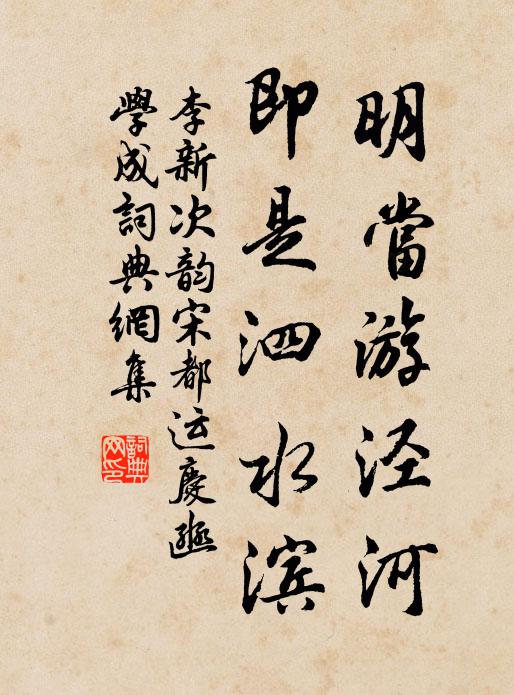 明當游泾河
即是泗水滨
李新次韵宋都运慶
學成詞典網集
詞典
网印